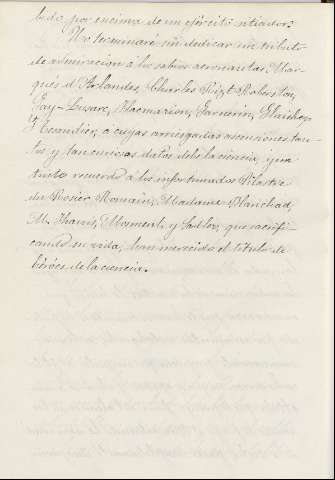 por encima de un ejército sitiador.
No terminaré sin dedicar un tributo
de admiracion á los sabios aeronautas, Mar-
qués d'Arlandes, Charles Pilat Roberston,
Gay-Lussac, Flacmarion, Garnerin, Glaisher
y Tissandier, á cuyas arriesgadas ascensiones tan-
tos y tan curiosos datos debe la ciencia, y un
recuerdo á los infortunados Pilastre
du Rosier, Romain, Madame Blanchad,
M. Harris, Mosment, y Sadler, que sacrifi-
cando su vida, han merecido el título de
héroes de la ciencia.